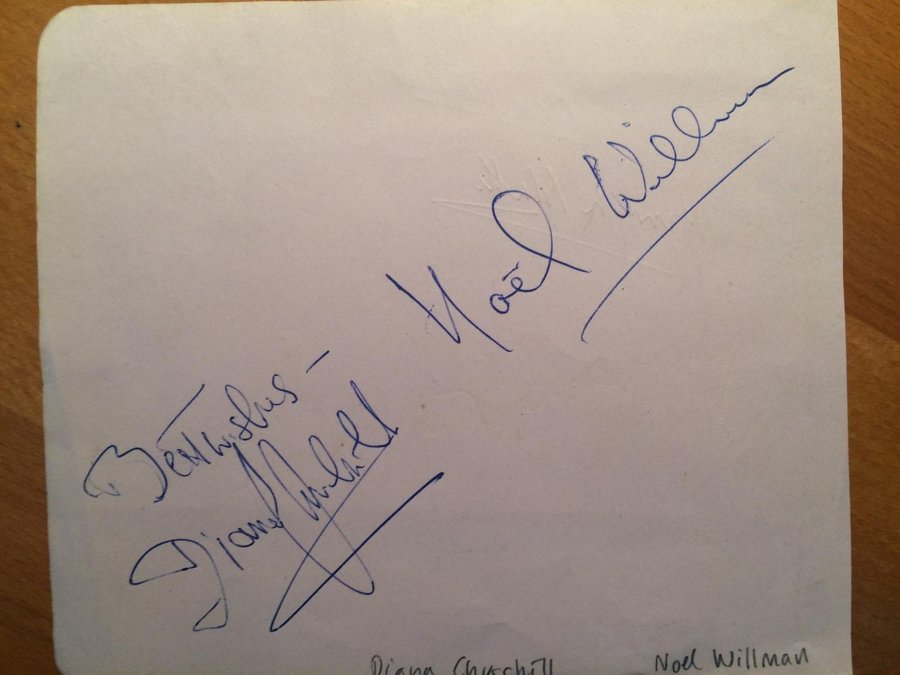 Noël Willman
Best wishes –
Diana Churchill
Diana Churchill
Noel Willman